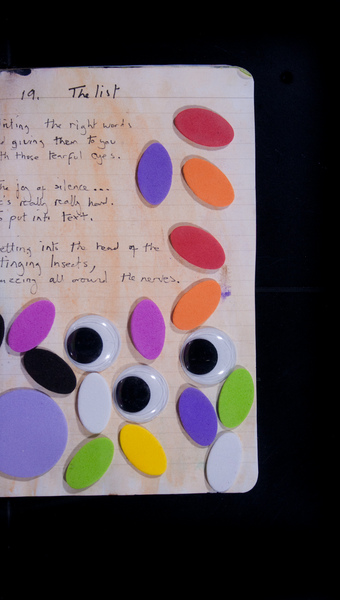 19. The list
the right words
giving them to you
th those tearful eyes.
the joy of silence...
's really really hard.
put into text.
etting into the head of the
tinging Insects,
all around the nerves.